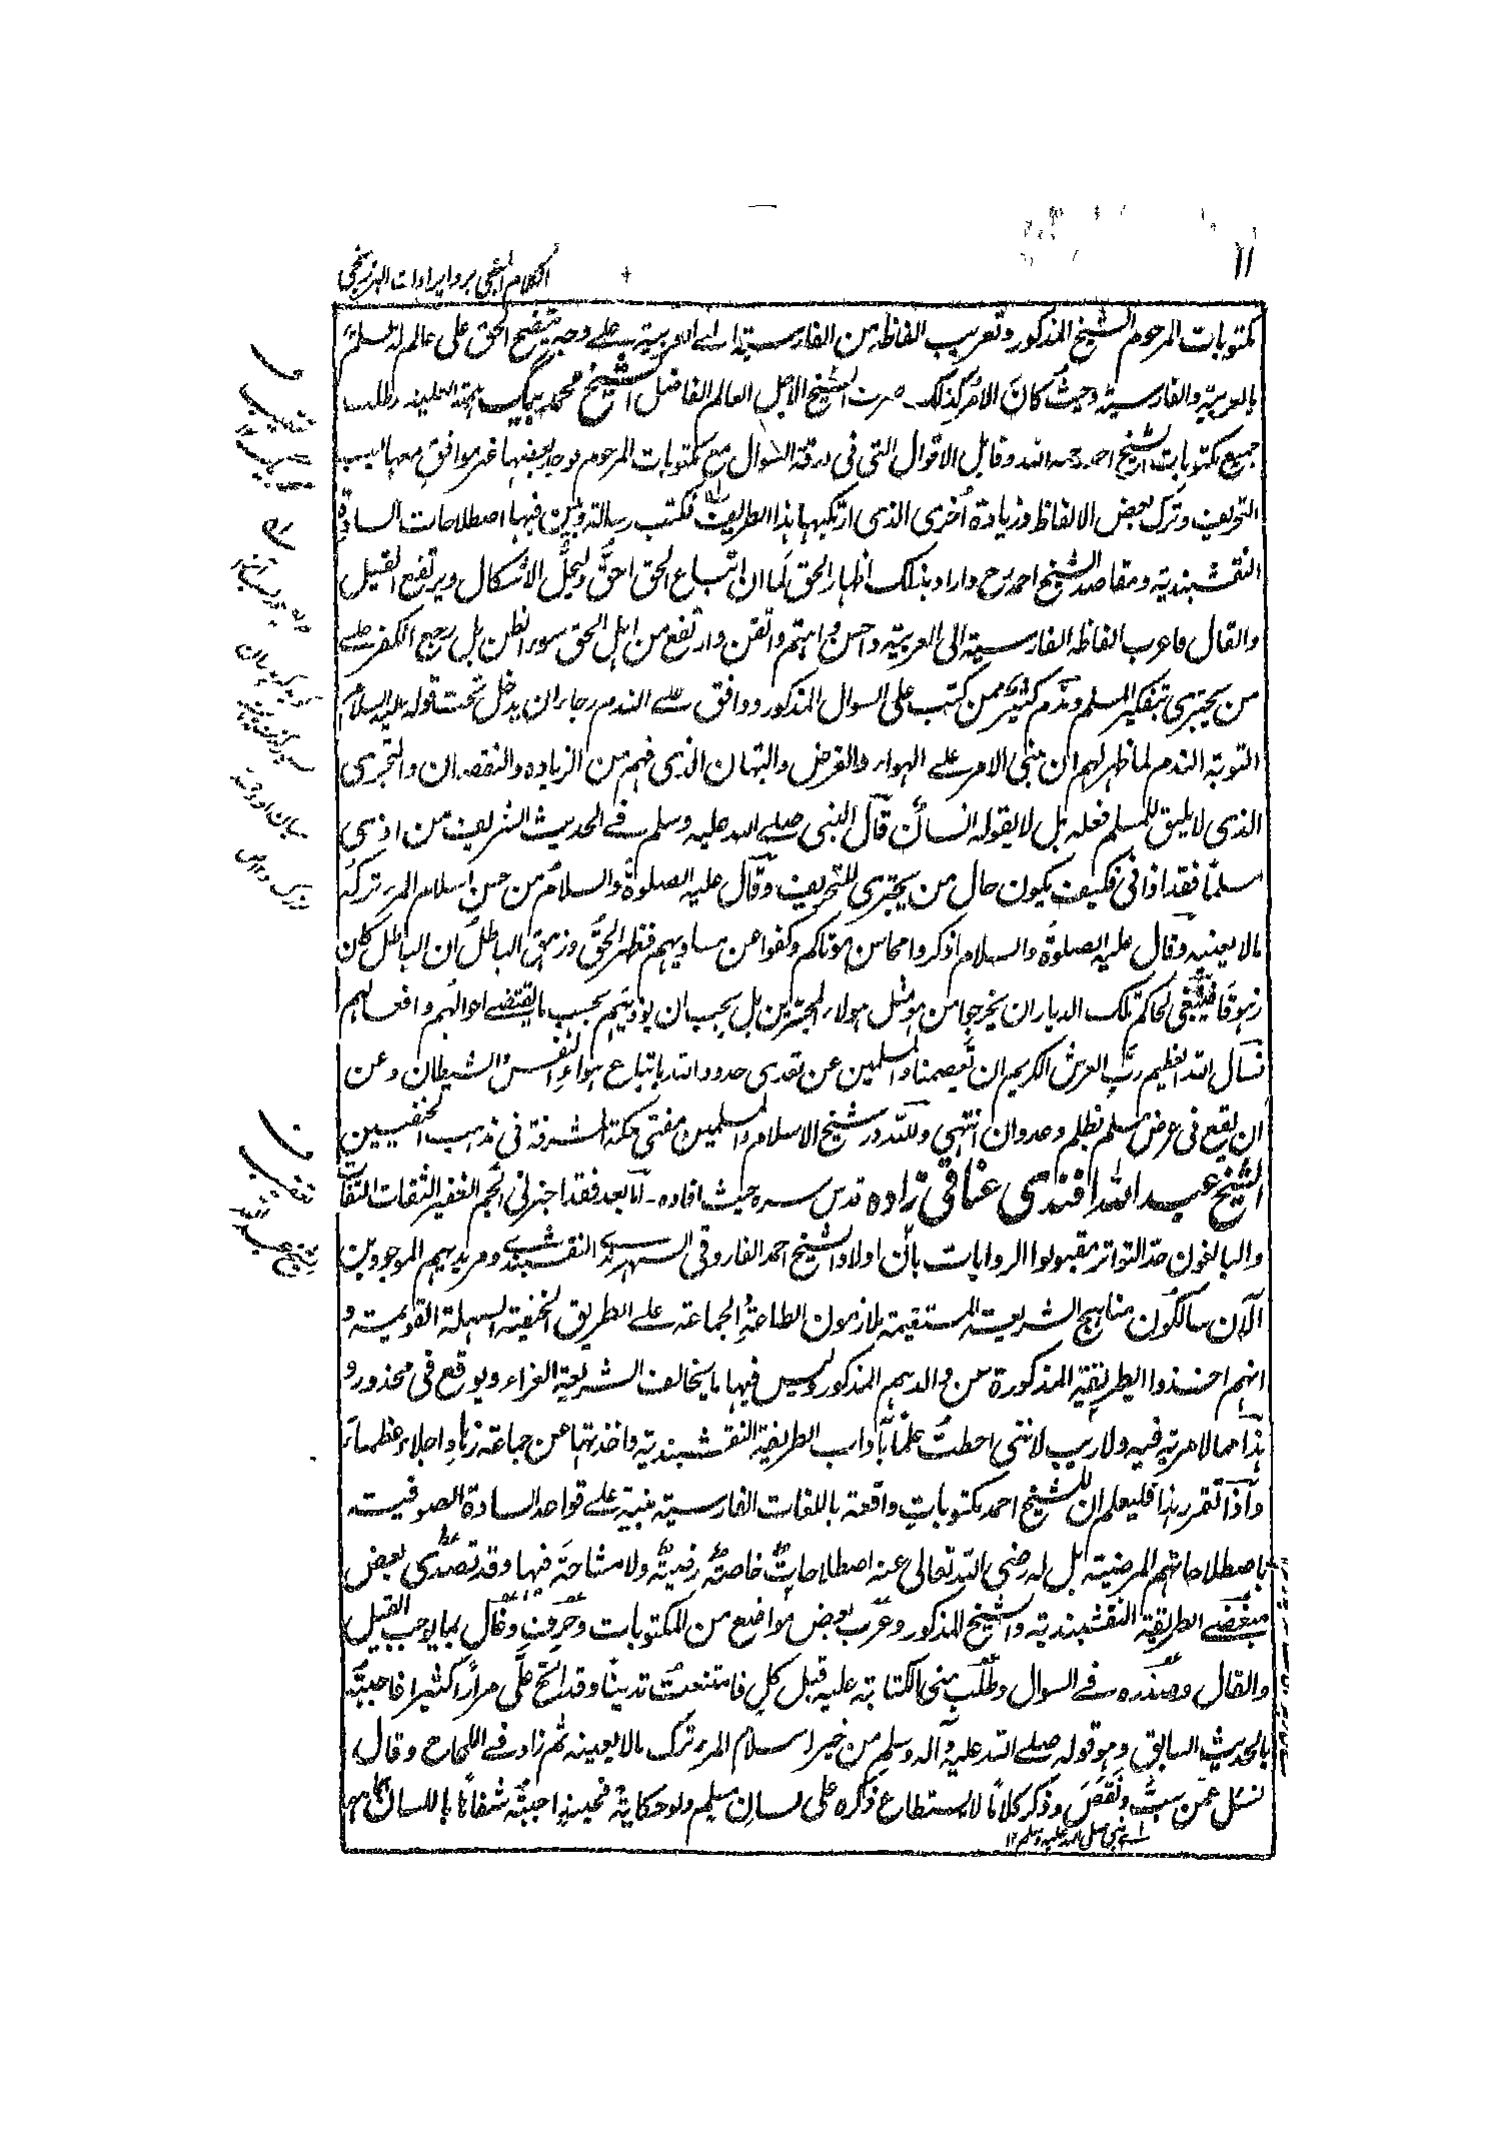 ١١
الكلام المنجى برد ايرادات البرزنجى
مكتوبات المرحوم الشيخ المذكور وتعريب الفاظه من الفارسية الى العربية على وجه يتضح الحق على عالم له المام
بالعربية والفارسية وحيث كان الامر كذلك صرت الشيخ الاجل العالم الفاضل الشيخ محمد بيگ لهذا وطلب
جميع مكتوبات الشيخ احمد رحمه الله وقابل الاقوال التى فى ورقة السوال مع مكتوبات المرحوم فوجد بعضها غير موافق معها لسبب
التحريف وترك بعض الالفاظ وزيادة أخرى الذى ارتكبها هذا الطريف فكتب رسالة وبين فيها اصطلاحات السادة
النقشبندية ومقاصد الشيخ احمد رح واراد بذلك اظهار الحق لما ان اتباع الحق احق ولينجل الاشكال ويرتفع القيل
والقال فاعرب الفاظه الفارسية الى العربية واحسن واهتم واتقن وارتفع من اهل الحق سوء الظن بل رجع الكفر على
من يجترى بتكفير المسلم وندم كثير ممن كتب على السوال المذكور ووافق على الندم رجاء ان يدخل تحت قوله عليه السلام
التوبة الندم لما ظهر لهم ان مبنى الامر على الهواء والغرض والبهتان الذى فهم من الزيادة والنقصان والتجرى
الذى لا يليق للمسلم فعله بل لا يقوله انسان قال النبى صلى الله عليه وسلم فى الحديث الشريف من اذى
مسلماً فقد اذانى فكيف يكون حال من يجترى للتحريف وقال عليه الصلوة والسلام من حسن اسلام المرء تركه
مالا يعنيه وقال عليه الصلوة والسلام اذكروا محاسن موتاكم وكفوا عن مساويهم فظهر الحق وزهق الباطل ان الباطل كان
زهوقا فينبغى لحاكم تلك الديار ان يخرجوا من هو مثل هولاء المجترين بل يجب ان يوذيهم بحسب ما يقتضى احوالهم وافعالهم
نسأل الله العظيم رب العرش الكريم ان يعصمنا والمسلمين عن تعدى حدود الله باتباع هواء النفس والشيطان وعن
ان يقع فى عرض مسلم بظلم وعدوان انتهى ولله در شيخ الاسلام والمسلمين مفتى مكة المشرفة فى مذهب الحنفيين
الشيخ عبد الله افندى عتاقى زاده قدس سره حيث افاده ـ اما بعد فقد اخبرنى الجم الغفير الثقات الثقات
والبالغون حد التواتر مقبولوا الروايات بان اولاد الشيخ احمد الفاروقى السهرندى النقشبندى ومريديهم الموجودين
الآن سالكون مناهج الشريعة المستقيمة ملازمون الطاعة والجماعة على الطريق الحنفية السهلة القويمة و
انهم اخذوا الطريقة المذكورة من والدهم المذكور وليس فيها ما يخالف الشريعة الغراء ويوقع فى محذور و
هذا مما لا مرية فيه ولا ريب لاننى احطت علما بآداب الطريقة النقشبندية واخذتها عن جماعة زهاد اجلاء عظماء
واذا تقرر هذا فليعلم ان للشيخ احمد مكتوبات واقعة باللغات الفارسية مبنية على قواعد السادة الصوفية
باصطلاحاتهم المرضية بل له رضى الله تعالى عنه اصطلاحات خاصة رضية ولا مشاحة فيها وقد تصدى بعض
مبغضى الطريقة النقشبندية والشيخ المذكور وعرب بعض مواضع من المكتوبات وحرف وقال بما يوجب القيل
والقال وصدره فى السوال وطلب منى الكتابة عليه قبل كل فامتنعت تدينا وقد الح على مرارا كثيرا فاجبته
بالحديث السابق وهو قوله صلى الله عليه وآله وسلم من خير اسلام المرء ترك مالا يعنيه ثم زاد فى اللجاج وقال
نسئل عمن سب ونقص وذكر كلاما لا يستطاع ذكره على لسان مسلم ولو حكاية فحينئذ اجبته شفاها باللسان
اے نبى صلى الله عليه وسلم ١٢